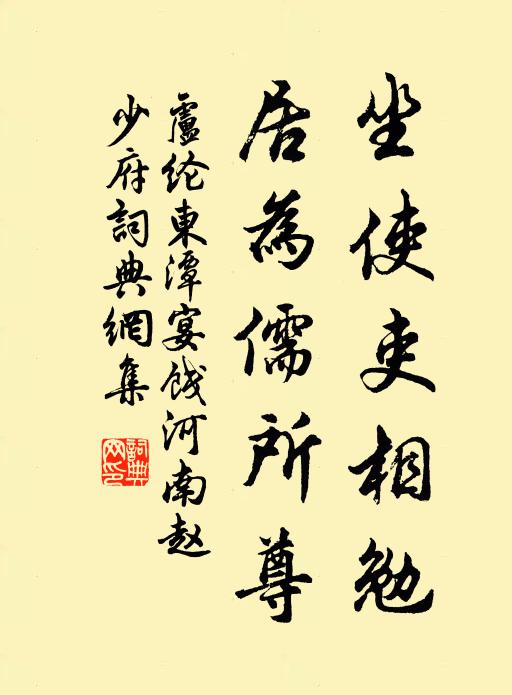 坐使吏相勉
居為儒所尊
盧纶東潭宴餞河南赵
少府詞典網集
詞典网印